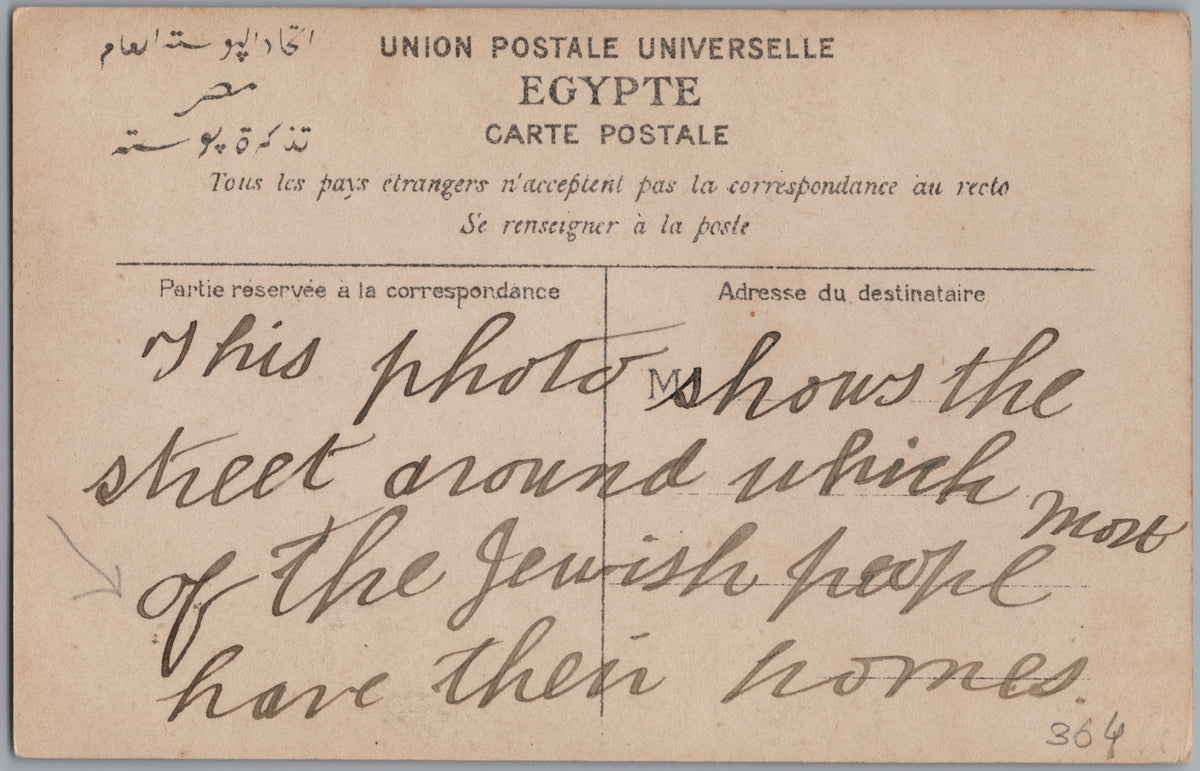 اتحاد البوسته العام
مصر
تذكرة بوسته
UNION POSTALE UNIVERSELLE
EGYPTE
CARTE POSTALE
Tous les pays étrangers n'acceptent pas la correspondance au recto
Se renseigner à la poste
Partie réservée à la correspondance
Adresse du destinataire
M
This photo shows the
street around which most
of the Jewish peopl
have their homes.
364